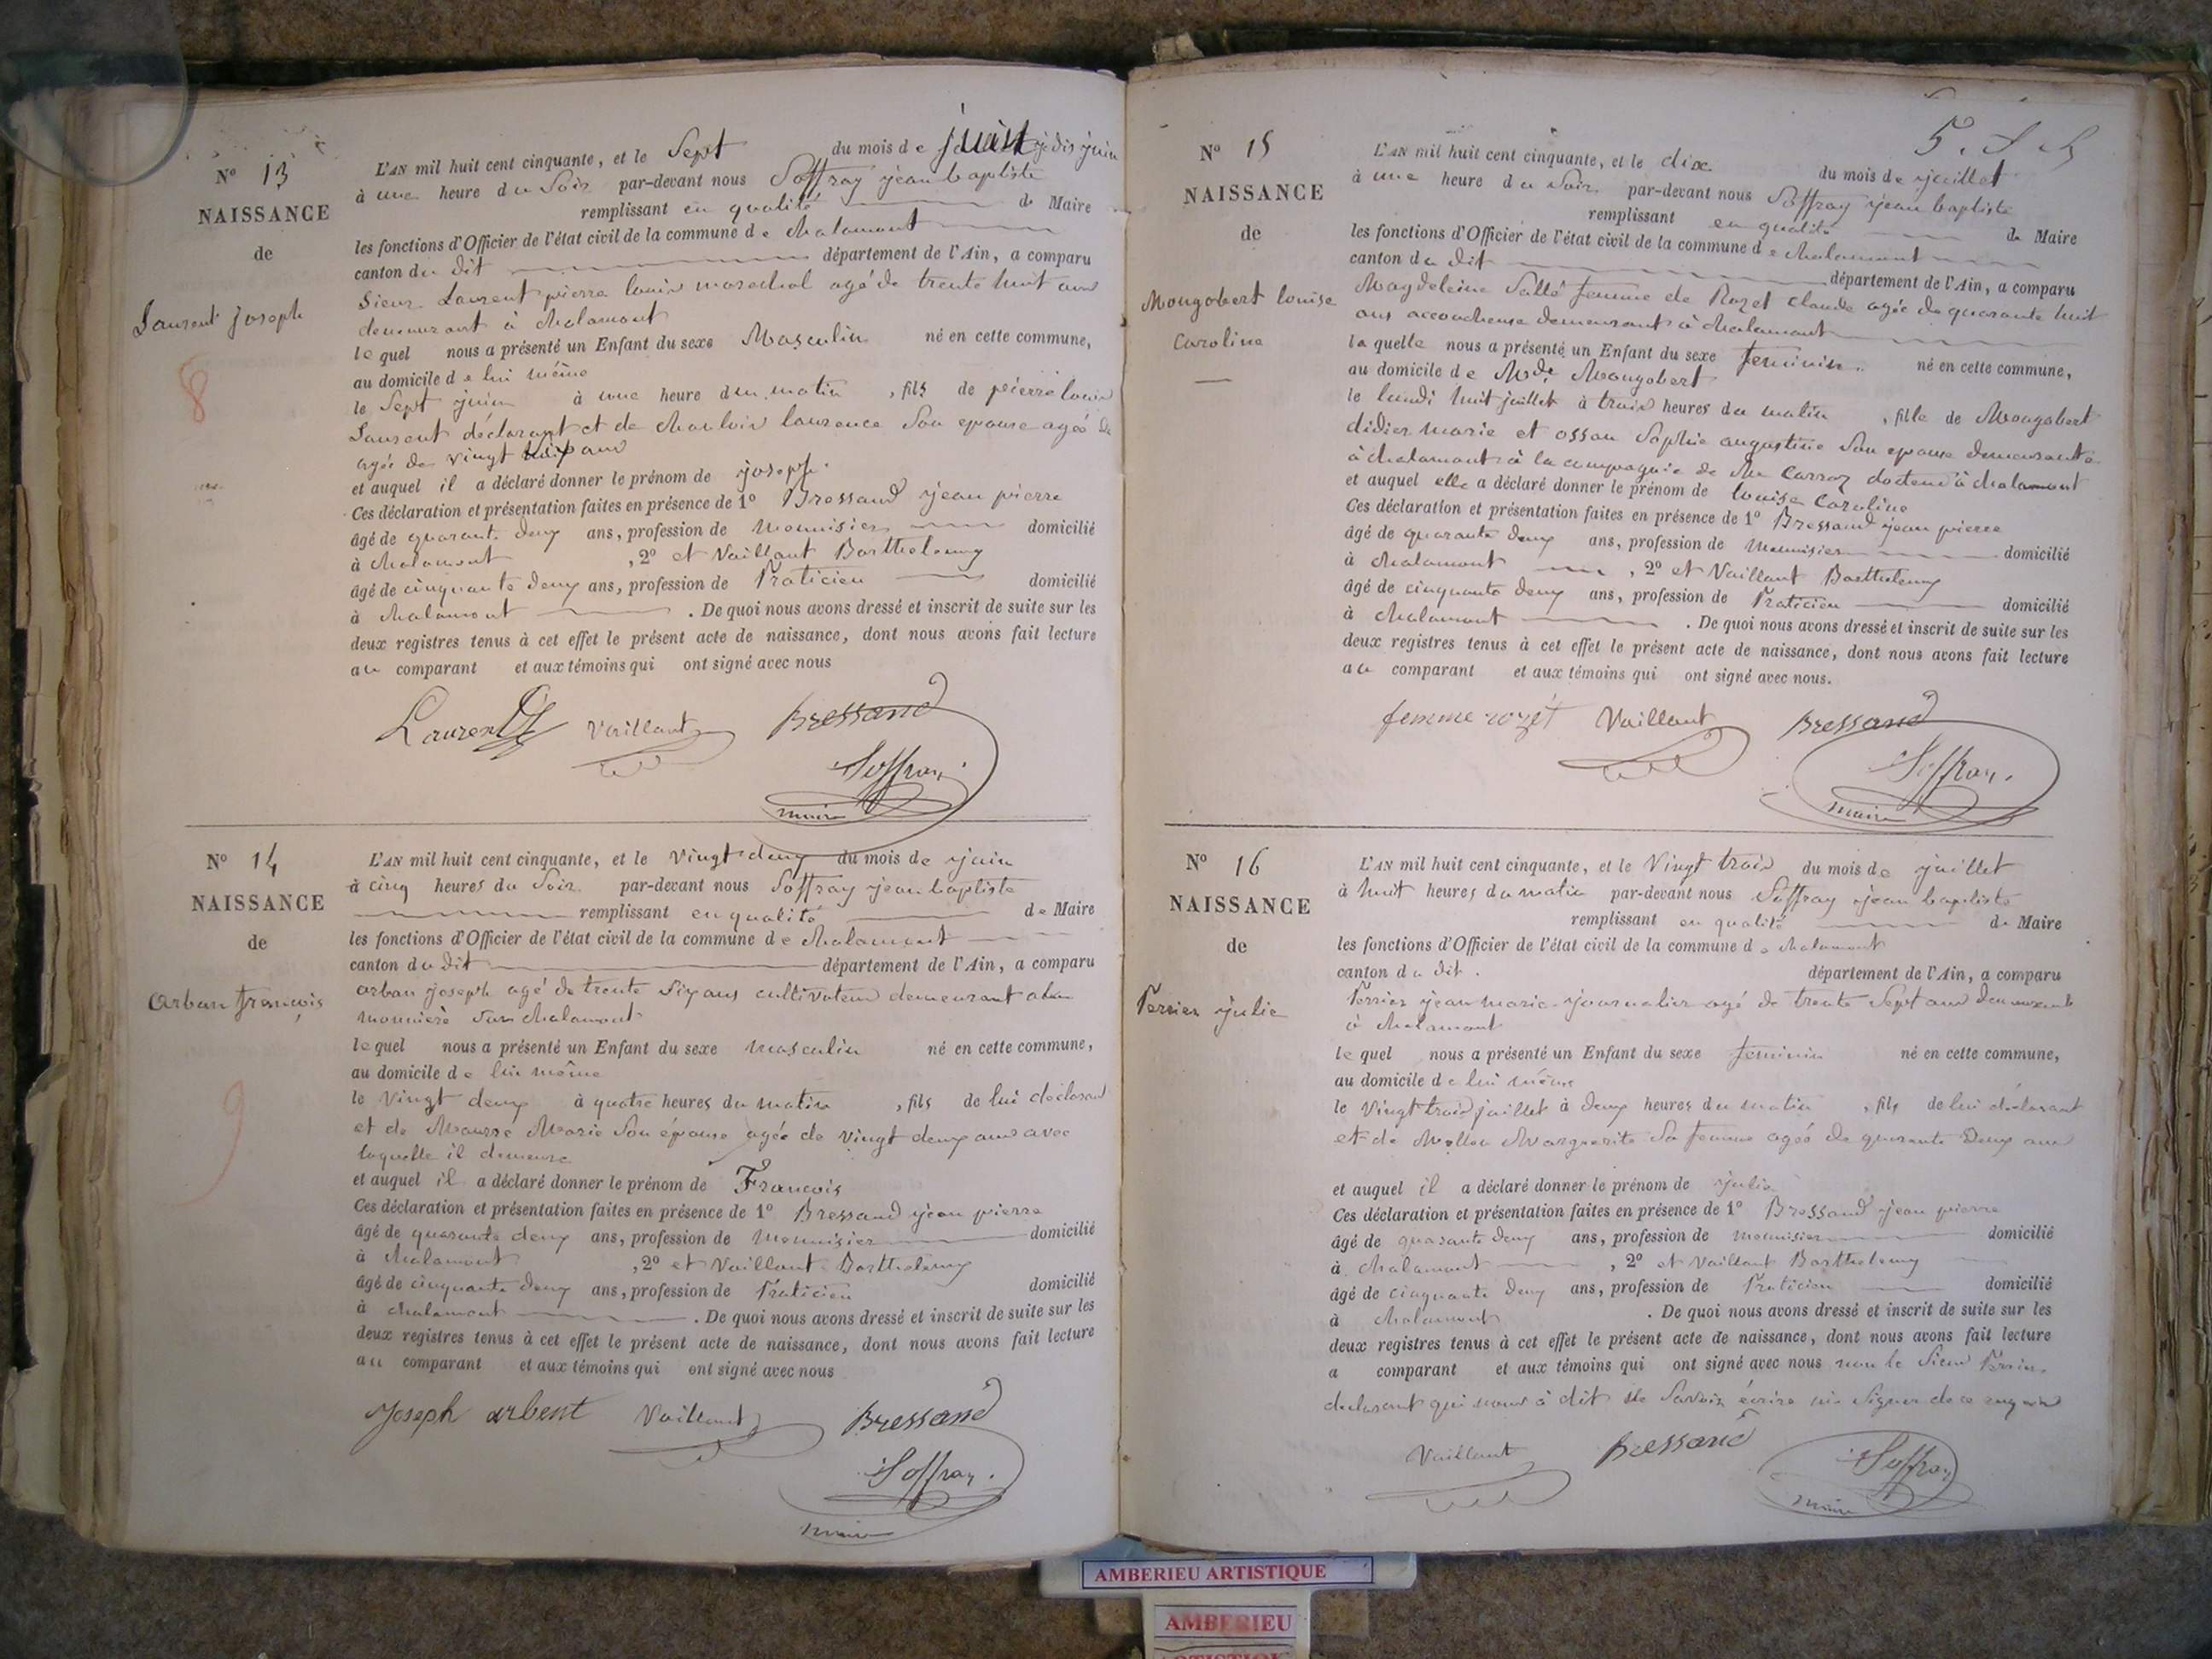 Nº 13
NAISSANCE
de
Laurent joseph
8
L'AN mil huit cent cinquante, et le Sept du mois de juin je dis juin
à une heure du Soir par-devant nous Soffray jean baptiste
remplissant en qualité de Maire
les fonctions d'Officier de l'état civil de la commune de chalamont
canton du dit département de l'Ain, a comparu
Sieur Laurent pierre louis marechal agé de trente huit ans
demeurant à chalamont
lequel nous a présenté un Enfant du sexe Masculin né en cette commune,
au domicile de lui même
le Sept juin à une heure du matin, fils de pierre louis
Laurent déclarant et de laurence Son epouse agée de
agée de vingt ans
et auquel il a déclaré donner le prénom de joseph.
Ces déclaration et présentation faites en présence de 1º Bressand jean pierre
âgé de quarante deux ans, profession de Menuisier domicilié
à chalamont, 2º et Vaillant Barthelemy
âgé de cinquante deux ans, profession de Praticien domicilié
à chalamont. De quoi nous avons dressé et inscrit de suite sur les
deux registres tenus à cet effet le présent acte de naissance, dont nous avons fait lecture
au comparant et aux témoins qui ont signé avec nous
Laurent Vaillant Bressand
Soffray
maire
Nº 14
NAISSANCE
de
Arban françois
9
L'AN mil huit cent cinquante, et le Vingt deux du mois de juin
à cinq heures du Soir par-devant nous Soffray jean baptiste
remplissant en qualité de Maire
les fonctions d'Officier de l'état civil de la commune de chalamont
canton du dit département de l'Ain, a comparu
arban joseph agé de trente Six ans cultivateur demeurant
Sur chalamont
lequel nous a présenté un Enfant du sexe masculin né en cette commune,
au domicile de lui même
le Vingt deux à quatre heures du matin, fils de lui déclarant
et de Marie Son épouse agée de vingt deux ans avec
laquelle il demeure
et auquel il a déclaré donner le prénom de François
Ces déclaration et présentation faites en présence de 1º Bressand jean pierre
âgé de quarante deux ans, profession de Menuisier domicilié
à chalamont, 2º et Vaillant Barthelemy
âgé de cinquante deux ans, profession de Praticien domicilié
à chalamont. De quoi nous avons dressé et inscrit de suite sur les
deux registres tenus à cet effet le présent acte de naissance, dont nous avons fait lecture
au comparant et aux témoins qui ont signé avec nous
Joseph arbent Vaillant Bressand
Soffray.
maire
Nº 15
NAISSANCE
de
Mongobert louise
Caroline
L'AN mil huit cent cinquante, et le dix du mois de juillet
à une heure du Soir par-devant nous Soffray jean baptiste
remplissant en qualité de Maire
les fonctions d'Officier de l'état civil de la commune de chalamont
canton du dit département de l'Ain, a comparu
Magdeleine Sallé femme de Rozet claude agée de quarante huit
ans accoucheuse demeurant à chalamont
laquelle nous a présenté un Enfant du sexe feminin né en cette commune,
au domicile de Mongobert
le lundi huit juillet à trois heures du matin, fille de Mongobert
didier marie et ossan Sophie augustine Son epouse demeurante
à chalamont à la compagnie de Mr Carroz docteur à chalamont
et auquel elle a déclaré donner le prénom de louise Caroline
Ces déclaration et présentation faites en présence de 1º Bressand jean pierre
âgé de quarante deux ans, profession de Menuisier domicilié
à chalamont, 2º et Vaillant Barthelemy
âgé de cinquante deux ans, profession de Praticien domicilié
à chalamont. De quoi nous avons dressé et inscrit de suite sur les
deux registres tenus à cet effet le présent acte de naissance, dont nous avons fait lecture
au comparant et aux témoins qui ont signé avec nous.
femme rozet Vaillant Bressand
Soffray.
maire
Nº 16
NAISSANCE
de
Perrier julie
L'AN mil huit cent cinquante, et le Vingt trois du mois de juillet
à huit heures du matin par-devant nous Soffray jean baptiste
remplissant en qualité de Maire
les fonctions d'Officier de l'état civil de la commune de chalamont
canton du dit. département de l'Ain, a comparu
Perrier jean marie journalier agé de trente Sept ans demeurant
à chalamont
lequel nous a présenté un Enfant du sexe feminin né en cette commune,
au domicile de lui même
le Vingt trois juillet à deux heures du matin, fils de lui déclarant
et de Marguerite Sa femme agée de quarante Deux ans
et auquel il a déclaré donner le prénom de julie
Ces déclaration et présentation faites en présence de 1º Bressand jean pierre
âgé de quarante deux ans, profession de menuisier domicilié
à chalamont, 2º et Vaillant Barthelemy
âgé de cinquante deux ans, profession de Praticien domicilié
à chalamont. De quoi nous avons dressé et inscrit de suite sur les
deux registres tenus à cet effet le présent acte de naissance, dont nous avons fait lecture
a comparant et aux témoins qui ont signé avec nous non le Sieur
declarant qui nous à dit ne Savoir écrire ni Signer de ce enquis
Vaillant Bressand Soffray
maire
AMBERIEU ARTISTIQUE
AMBERIEU
ARTISTIQUE